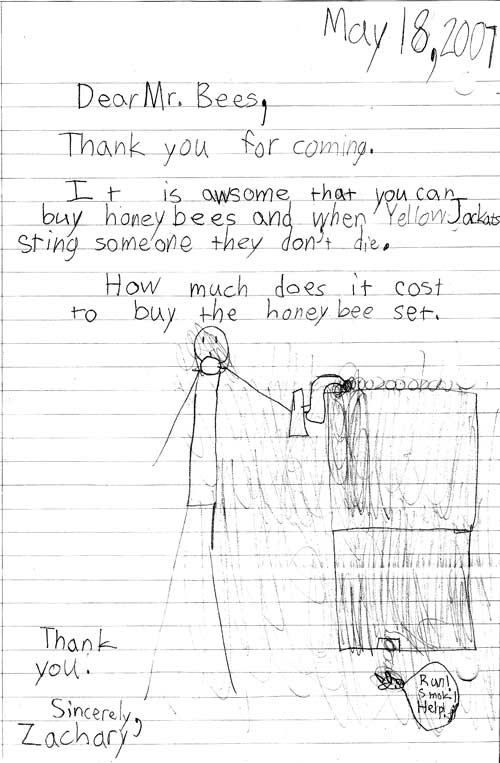 May 18, 2007
Dear Mr. Bees,
Thank you for coming.
It is awsome that you can
buy honey bees and when Yellow Jackats
sting someone they don't die.
How much does it cost
to buy the honey bee set.
Run!
Smok!
Help!
Thank
you.
Sincerely,
Zachary